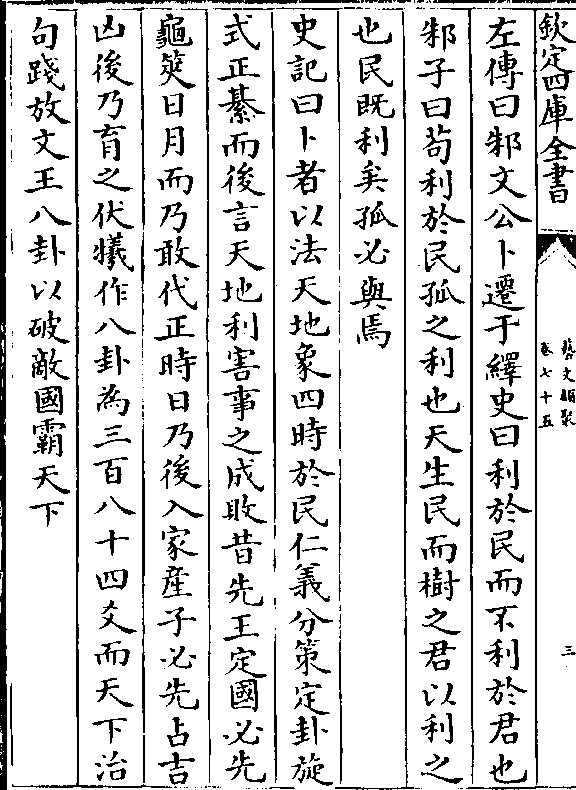 欽定四庫全書
藝文類聚
卷七十五
三
左傳曰邾文公卜遷于繹史曰利於民而不利於君也
邾子曰苟利於民孤之利也天生民而樹之君以利之
也民既利矣孤必與焉
史記曰卜者以法天地象四時於民仁義分策定卦旋
式正綦而後言天地利害事之成敗昔先王定國必先
龜筴日月而乃敢代正時日乃後入家産子必先占吉
凶後乃育之伏犧作八卦為三百八十四爻而天下治
句踐放文王八卦以破敵國霸天下